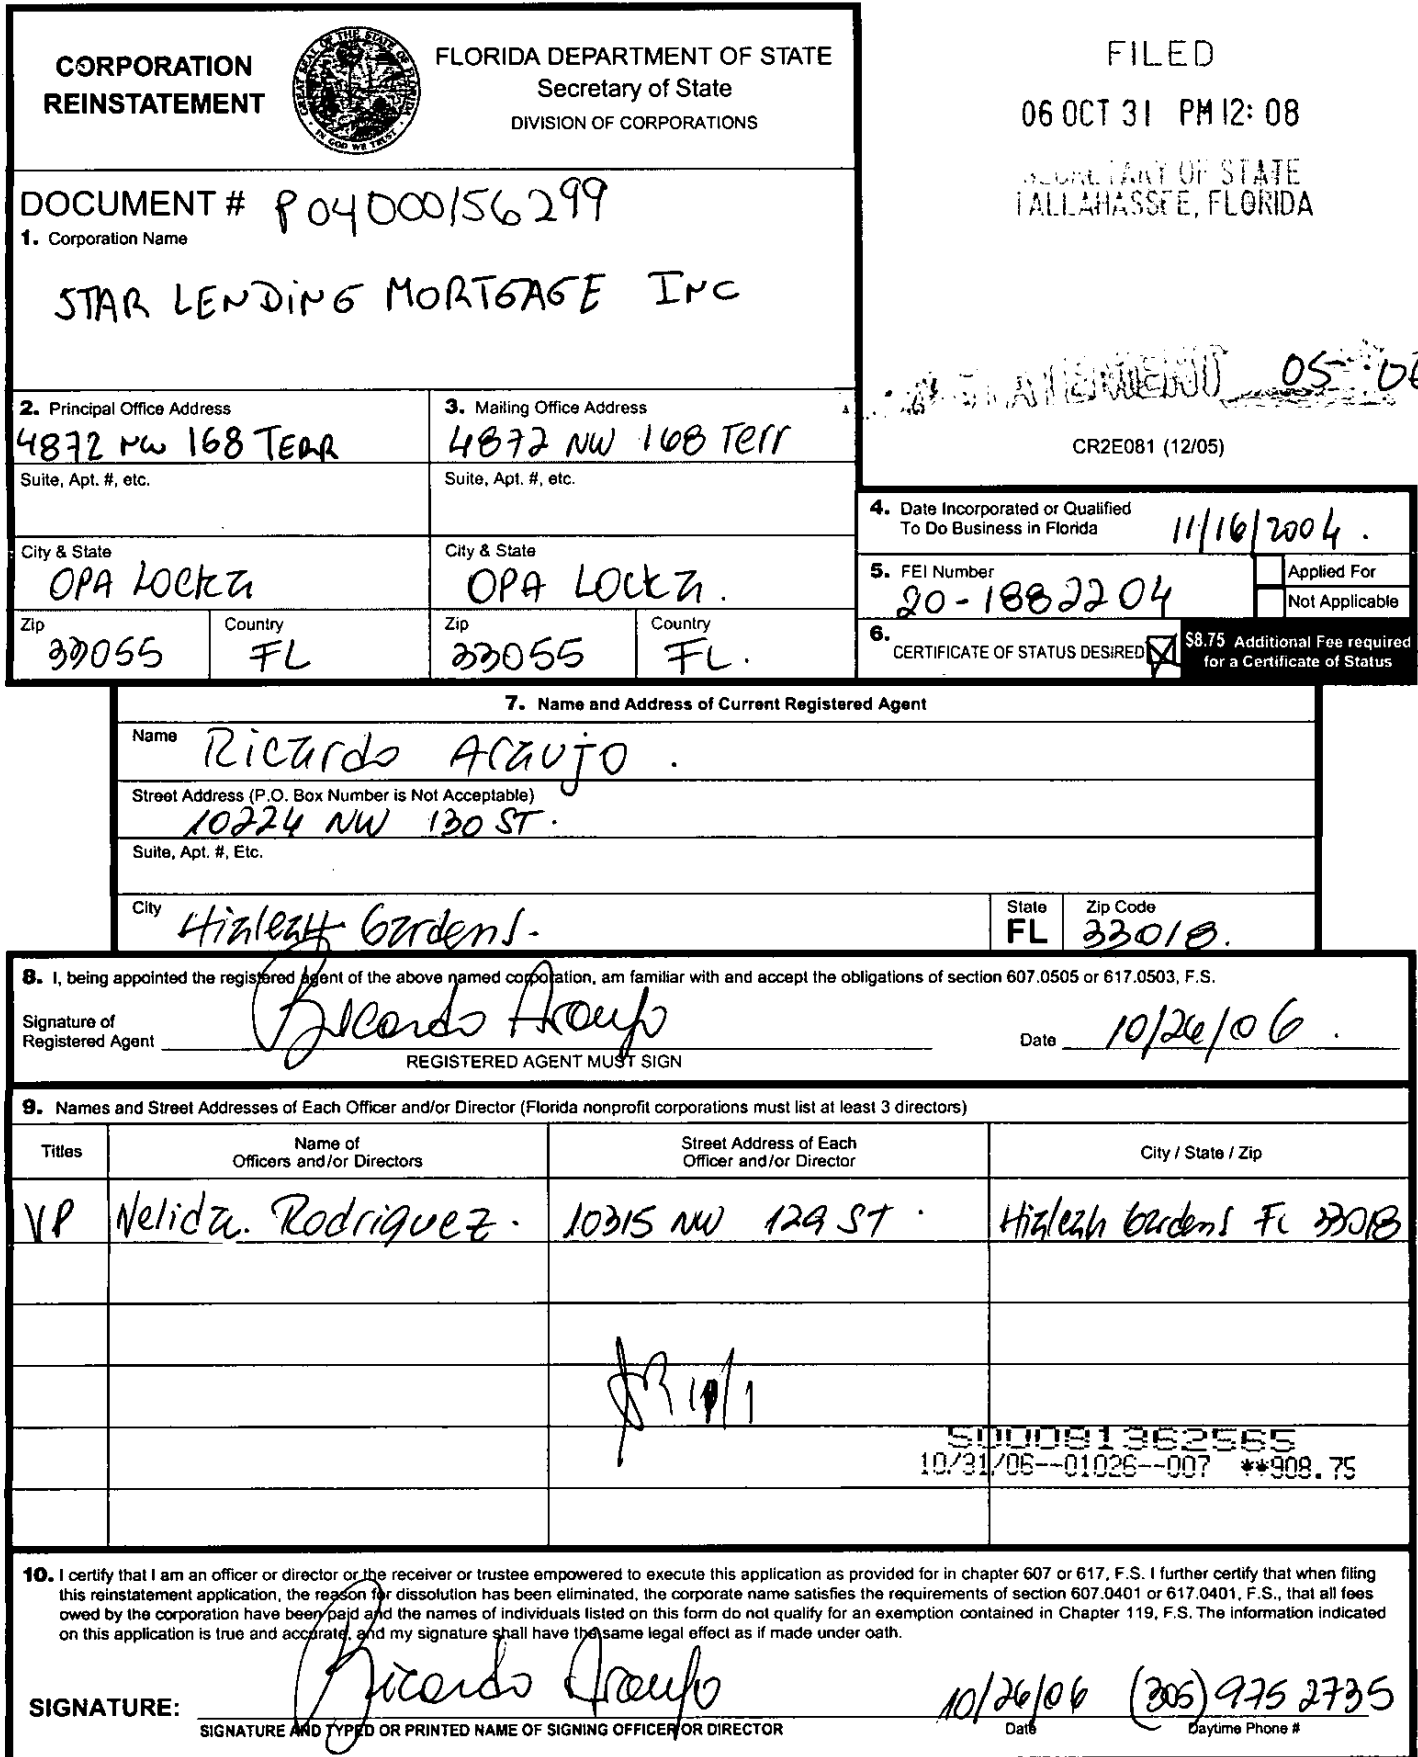 CORPORATION
REINSTATEMENT
GREAT SEAL OF THE STATE OF FLORIDA
IN GOD WE TRUST
FLORIDA DEPARTMENT OF STATE
Secretary of State
DIVISION OF CORPORATIONS
FILED
06 OCT 31 PM 12: 08
SECRETARY OF STATE
TALLAHASSEE, FLORIDA
DOCUMENT # P04000156299
1. Corporation Name
STAR LENDING MORTGAGE INC
05-06
CR2E081 (12/05)
2. Principal Office Address
4872 NW 168 TERR
3. Mailing Office Address
4872 NW 168 Terr
Suite, Apt. #, etc.
Suite, Apt. #, etc.
City & State
OPA LOCKA
City & State
OPA LOCKA.
Zip
33055
Country
FL
Zip
33055
Country
FL.
4. Date Incorporated or Qualified
To Do Business in Florida
11/16/2004.
5. FEI Number
20-1882204
Applied For
Not Applicable
6. CERTIFICATE OF STATUS DESIRED
$8.75 Additional Fee required
for a Certificate of Status
7. Name and Address of Current Registered Agent
Name Ricardo Araujo.
Street Address (P.O. Box Number is Not Acceptable)
10224 NW 130 ST.
Suite, Apt. #, Etc.
City Hialeah Gardens.
State
FL
Zip Code
33018.
8. I, being appointed the registered agent of the above named corporation, am familiar with and accept the obligations of section 607.0505 or 617.0503, F.S.
Signature of
Registered Agent Ricardo Araujo
REGISTERED AGENT MUST SIGN
Date 10/26/06.
9. Names and Street Addresses of Each Officer and/or Director (Florida nonprofit corporations must list at least 3 directors)
Titles
Name of
Officers and/or Directors
Street Address of Each
Officer and/or Director
City / State / Zip
VP Nelida. Rodriguez. 10315 NW 129 ST. Hialeah Gardens FL 33018
11/1
500081362565
10/31/06--01026--007 **908.75
10. I certify that I am an officer or director or the receiver or trustee empowered to execute this application as provided for in chapter 607 or 617, F.S. I further certify that when filing
this reinstatement application, the reason for dissolution has been eliminated, the corporate name satisfies the requirements of section 607.0401 or 617.0401, F.S., that all fees
owed by the corporation have been paid and the names of individuals listed on this form do not qualify for an exemption contained in Chapter 119, F.S. The information indicated
on this application is true and accurate, and my signature shall have the same legal effect as if made under oath.
SIGNATURE: Ricardo Araujo 10/26/06 (305) 975 2735
SIGNATURE AND TYPED OR PRINTED NAME OF SIGNING OFFICER OR DIRECTOR
Date
Daytime Phone #